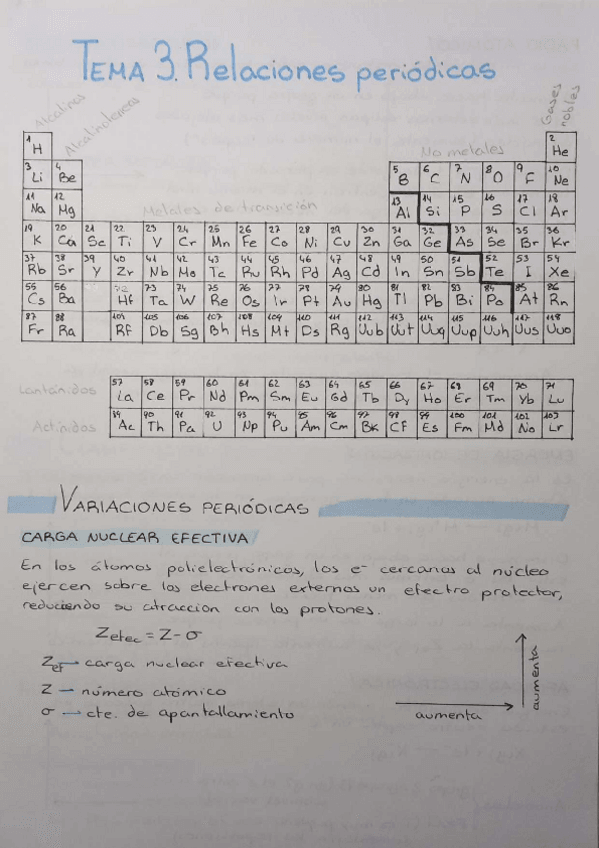 TEMA 3. Relaciones periódicas
Alcalinos
Alcalinotérreos
Gases nobles
No metales
Metales de transición
1 H 2 He
3 Li 4 Be 5 B 6 C 7 N 8 O 9 F 10 Ne
11 Na 12 Mg 13 Al 14 Si 15 P 16 S 17 Cl 18 Ar
19 K 20 Ca 21 Sc 22 Ti 23 V 24 Cr 25 Mn 26 Fe 27 Co 28 Ni 29 Cu 30 Zn 31 Ga 32 Ge 33 As 34 Se 35 Br 36 Kr
37 Rb 38 Sr 39 Y 40 Zr 41 Nb 42 Mo 43 Tc 44 Ru 45 Rh 46 Pd 47 Ag 48 Cd 49 In 50 Sn 51 Sb 52 Te 53 I 54 Xe
55 Cs 56 Ba 72 Hf 73 Ta 74 W 75 Re 76 Os 77 Ir 78 Pt 79 Au 80 Hg 81 Tl 82 Pb 83 Bi 84 Po 85 At 86 Rn
87 Fr 88 Ra 104 Rf 105 Db 106 Sg 107 Bh 108 Hs 109 Mt 110 Ds 111 Rg 112 Uub 113 Uut 114 Uuq 115 Uup 116 Uuh 117 Uus 118 Uuo
Lantánidos 57 La 58 Ce 59 Pr 60 Nd 61 Pm 62 Sm 63 Eu 64 Gd 65 Tb 66 Dy 67 Ho 68 Er 69 Tm 70 Yb 71 Lu
Actínidos 89 Ac 90 Th 91 Pa 92 U 93 Np 94 Pu 95 Am 96 Cm 97 Bk 98 Cf 99 Es 100 Fm 101 Md 102 No 103 Lr
VARIACIONES PERIÓDICAS
CARGA NUCLEAR EFECTIVA
En los átomos polielectrónicos, los e⁻ cercanos al núcleo
ejercen sobre los electrones externos un efectro protector,
reduciendo su atracción con los protones.
Zefec = Z - σ
Zef → carga nuclear efectiva
Z → número atómico
σ → cte. de apantallamiento
aumenta
aumenta